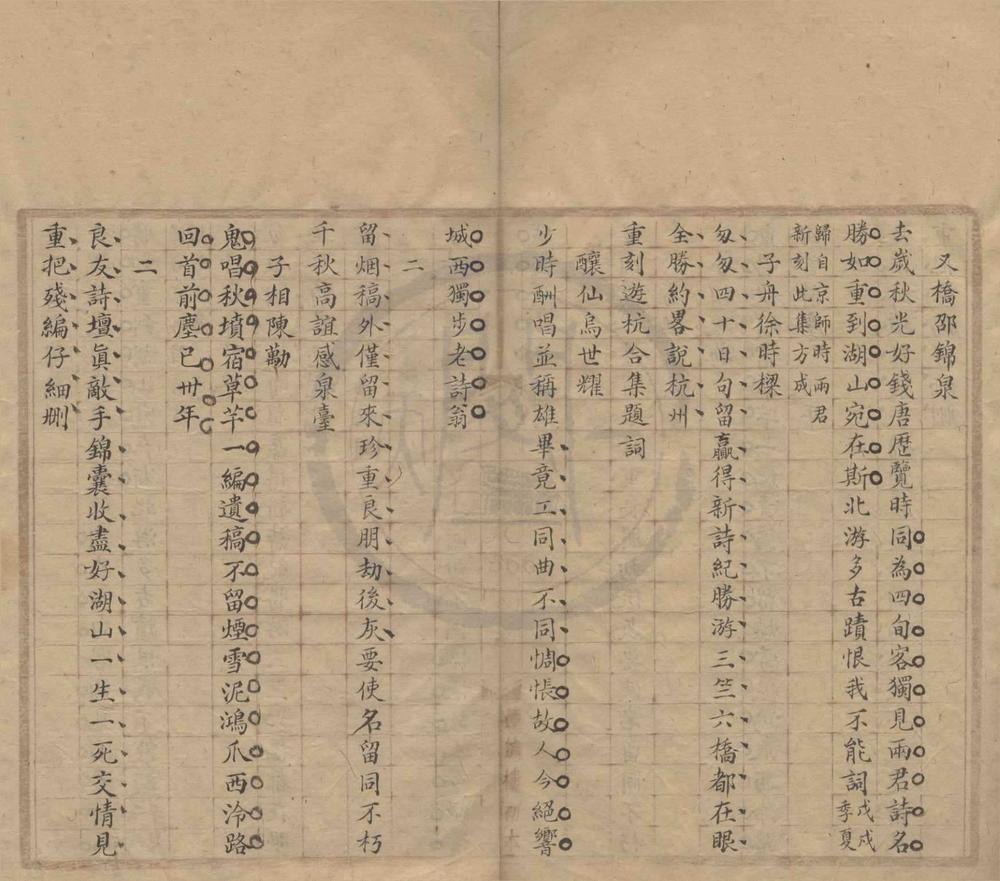 又橋邵錦泉
去歲秋光好錢唐歷覽時同為四旬客獨見兩君詩名
勝如重到湖山宛在斯北游多古蹟恨我不能詞戊戌季夏
歸自京師時兩君
新刻此集方成
子舟徐時樑
匆匆四十日句留贏得新詩紀勝游三竺六橋都在眼
全勝約畧說杭州
重刻遊杭合集題詞
釀仙烏世耀
少時酬唱並稱雄畢竟工同曲不同惆悵故人今絕響
城西獨步老詩翁
二
留烟稿外僅留來珍重良朋劫後灰要使名留同不朽
千秋高誼感泉臺
子相陳勱
鬼唱秋墳宿草芊一編遺稿不留煙雪泥鴻爪西泠路
回首前塵已卅年
二
良友詩壇眞敵手錦囊收盡好湖山一生一死交情見
重把殘編仔細刪